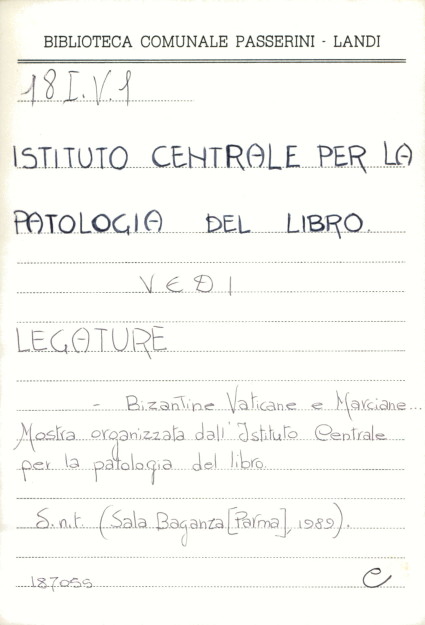 BIBLIOTECA COMUNALE PASSERINI - LANDI
18 I.V.1
ISTITUTO CENTRALE PER LA
PATOLOGIA DEL LIBRO.
VEDI
LEGATURE
- Bizantine Vaticane e Marciane...
Mostra organizzata dall'Istituto Centrale
per la patologia del libro.
S.n.t. (Sala Baganza [Parma], 1989).
187055 e